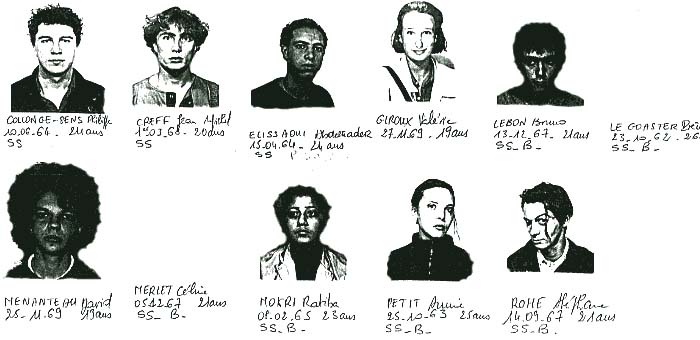 COLLONGE-SENS Philippe
10.06.64 - 24 ans
SS
CREFF Jean Michel
19.03.68 - 20 ans
SS
ELISSAOUI
15.04.64 - 24 ans
SS
GIROUX Valérie
27.11.69 - 19 ans
LEBON Bruno
13-12.67 - 21 ans
SS_ B_
LE GOASTER
23-10.62 - 26
SS_ B_
MENANTEAU David
25-11.69 19 ans
MERLET Céline
05.12.67 21 ans
SS_ B_
MOKRI Ratiba
08.02.65 23 ans
SS_ B_
PETIT
25-10-63 25 ans
SS_ B_
ROME Stéphane
14.09-67 21 ans
SS_ B_